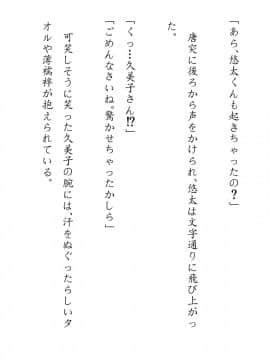 「あら、悠太くんも起きちゃったの？」
　唐突に後ろから声をかけられ、悠太は文字通りに飛び上がっ
た。
「くっ…久美子さん⁉」
「ごめんなさいね。驚かせちゃったかしら」
　可笑しそうに笑った久美子の腕には、汗をぬぐったらしいタ
オルや薄襦袢が抱えられている。